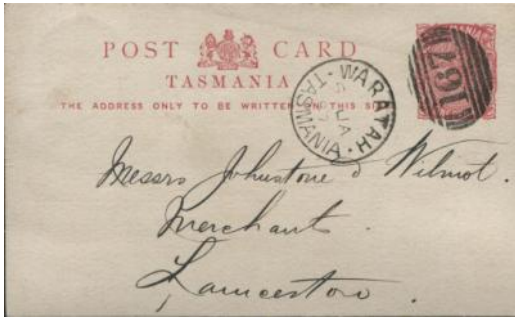 POST CARD
TASMANIA
THE ADDRESS ONLY TO BE WRITTEN ON THIS SI
WARATAH
JA
TASMANIA
167
Messrs Johnstone & Wilmot.
Merchant.
Launceston.